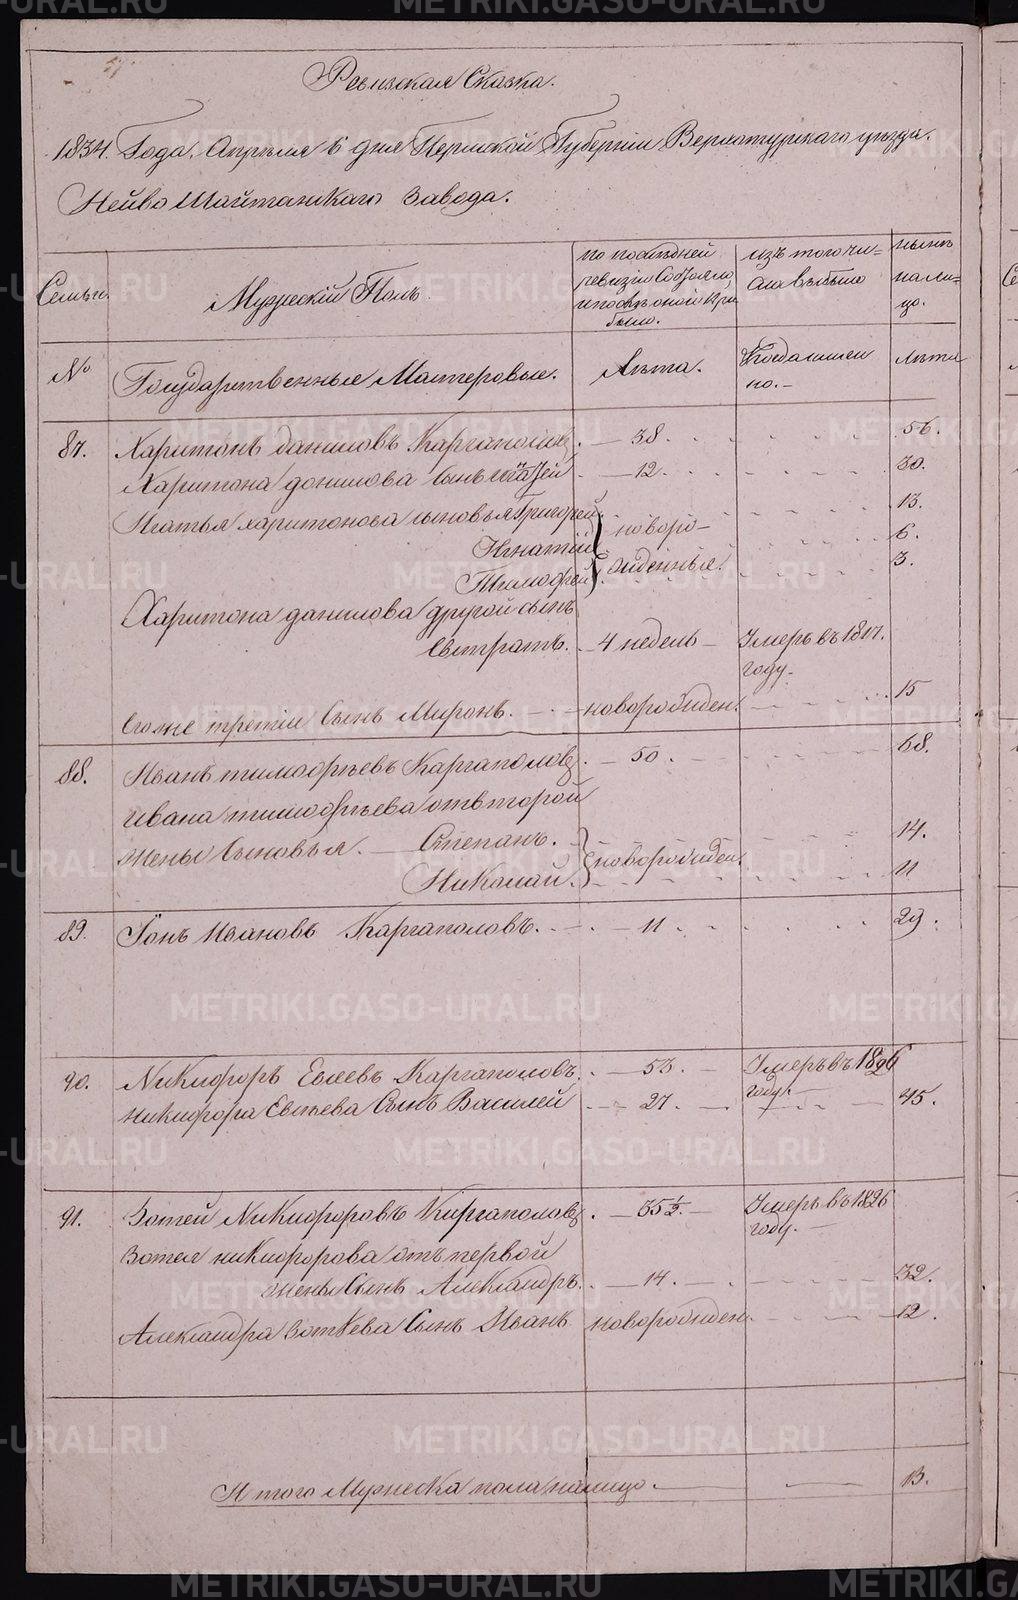 Ревизская Сказка.
1834. Года. Апреля 6 дня Пермской Губернии Верхотурскаго уезда.
Нейво Шайтанскаго Завода.
Семьи.
Мужескiй Полъ.
по последней
ревизiи Состояло,
и после оной при
было.
изъ того чи=
сла выбыло
ныне
нали=
цо.
№
Государственные Мастеровые.
Лета.
Когда именно.
лета
87. Харитонъ даниловъ Каргаполовъ. — 38. 56.
Харитона данилова Сынъ — 12. 30.
харитонова сыновья Григорей 13.
Игнатiй новоро- 6.
Тимофей жденные. 3.
Харитона данилова другой сынъ
Евстратъ. — 4 недель — Умеръ въ 1817.
году.
Его же третiи Сынъ Миронъ. — новорожден. 15
88. Иванъ тимофеевъ Каргаполовъ. — 50. 68.
Ивана тимофеева от второй
жены Сыновья. — Степанъ. 14.
Николай. новорожден. 11
89. Iонъ Ивановъ Каргаполовъ. — 11. 29.
90. Никифоръ Евсеевъ Каргаполовъ. — 53. — Умеръ въ 1826
году.
Никифора Евсеева Сынъ Василей — 27. — 45.
91. Зотей Никифоровъ Каргаполовъ. — 35½. — Умеръ въ 1826
году. —
Зотея никифорова отъ первой
жены Сынъ Александръ. — 14. — 32.
Александра Зотеева Сынъ Иванъ новорожден. 12.
И того Мужеска пола налицо. — — 13.
METRIKI.GASO-URAL.RU